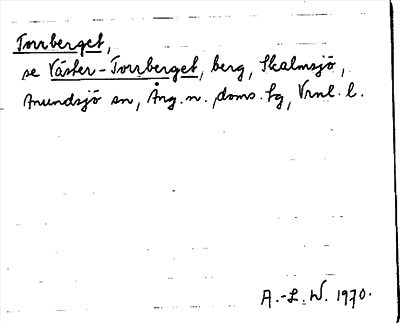 Torrberget,
se Väster-Torrberget, berg, Skalmsjö,
Anundsjö sn, Ång. n. doms. tg, Vrnl. l.
A.-L. W. 1970.